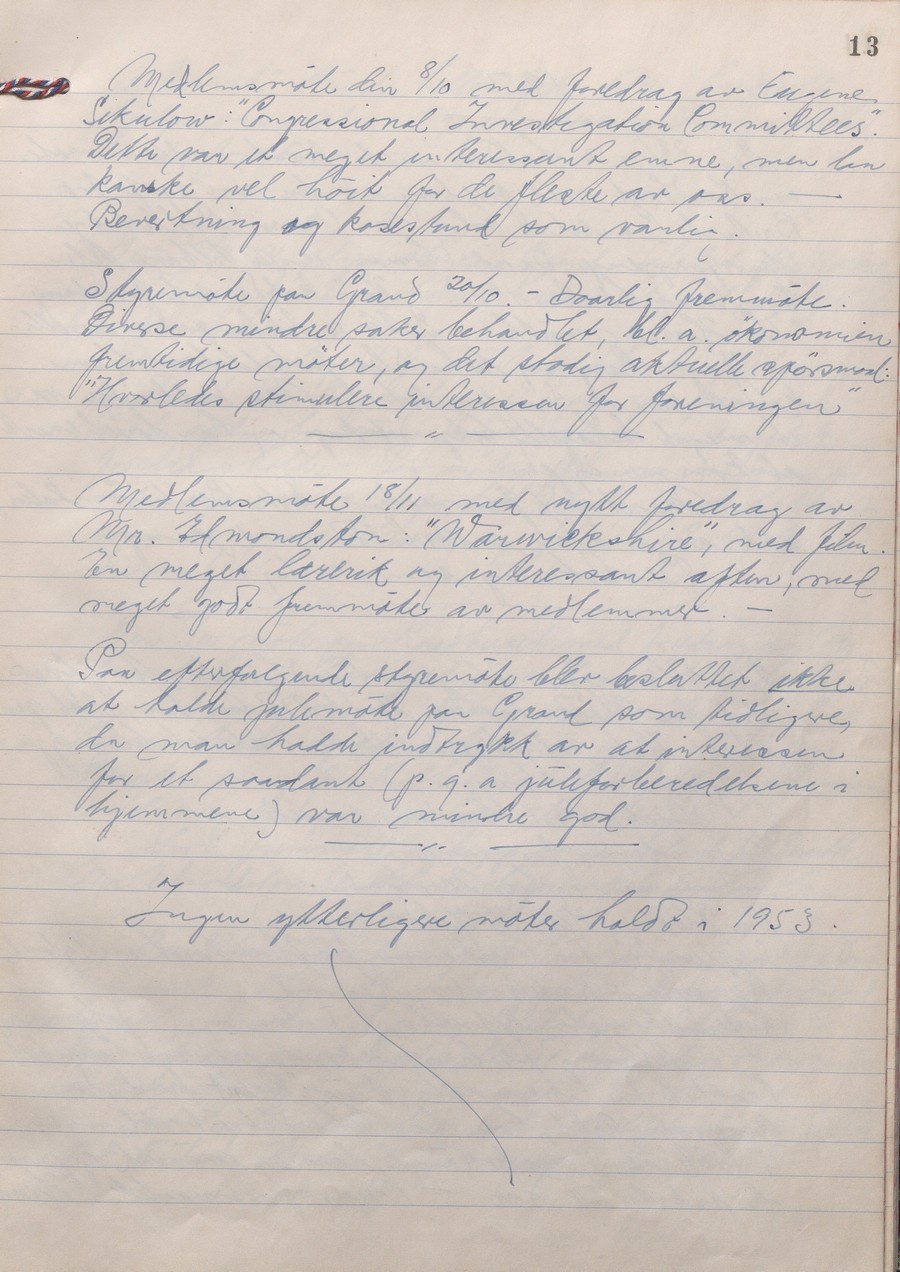 13
Medlemsmöte den 8/10 med foredrag av Eugene
Sikulow: "Congressional Investigation Committees".
Dette var et meget interessant emne, men
kanske vel höit for de fleste av oss. —
Bevertning og kosestund som vanlig.
Styremöte paa Grand 20/10. – Daarlig fremmöte.
Diverse mindre saker behandlet, bl. a. ökonomien
fremtidige möter, og det stadig aktuelle spörsmaal:
"Hvorledes stimulere interessen for foreningen"
Medlemsmöte 18/11 med nytt foredrag av
Mr. Edmondston: "Warwickshire", med film.
En meget lærerik og interessant aften, med
meget godt fremmöte av medlemmer. —
Paa efterfölgende styremöte blev besluttet ikke
at holde julemöte paa Grand som tidligere,
da man hadde indtrykk av at interessen
for et saadant (p. g. a juleforberedelsene i
hjemmene) var mindre god.
Ingen ytterligere möter holdt i 1953.